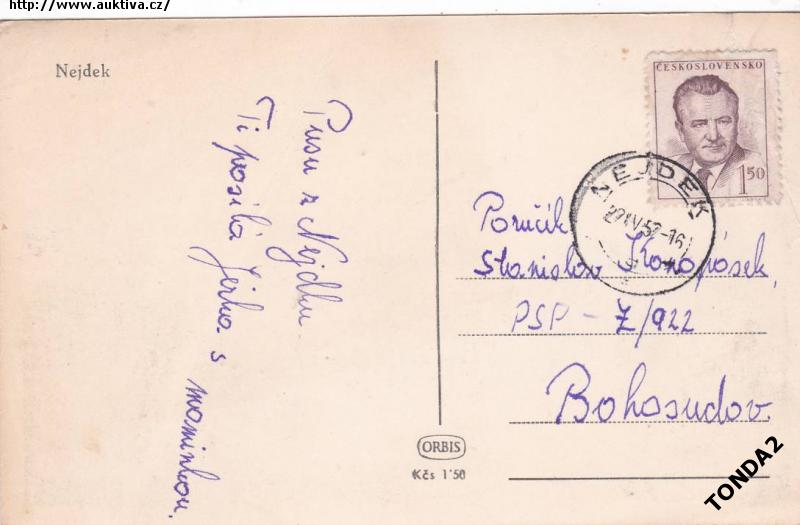 http://www.auktiva.cz/
Nejdek
Pusu z Nejdku
Ti posílá Jirka s maminkou.
ČESKOSLOVENSKO
1 50
NEJDEK
Poručík
Stanislav Konopásek,
PSP - Z/922
Bohosudov.
ORBIS
Kčs 1·50
TONDA2